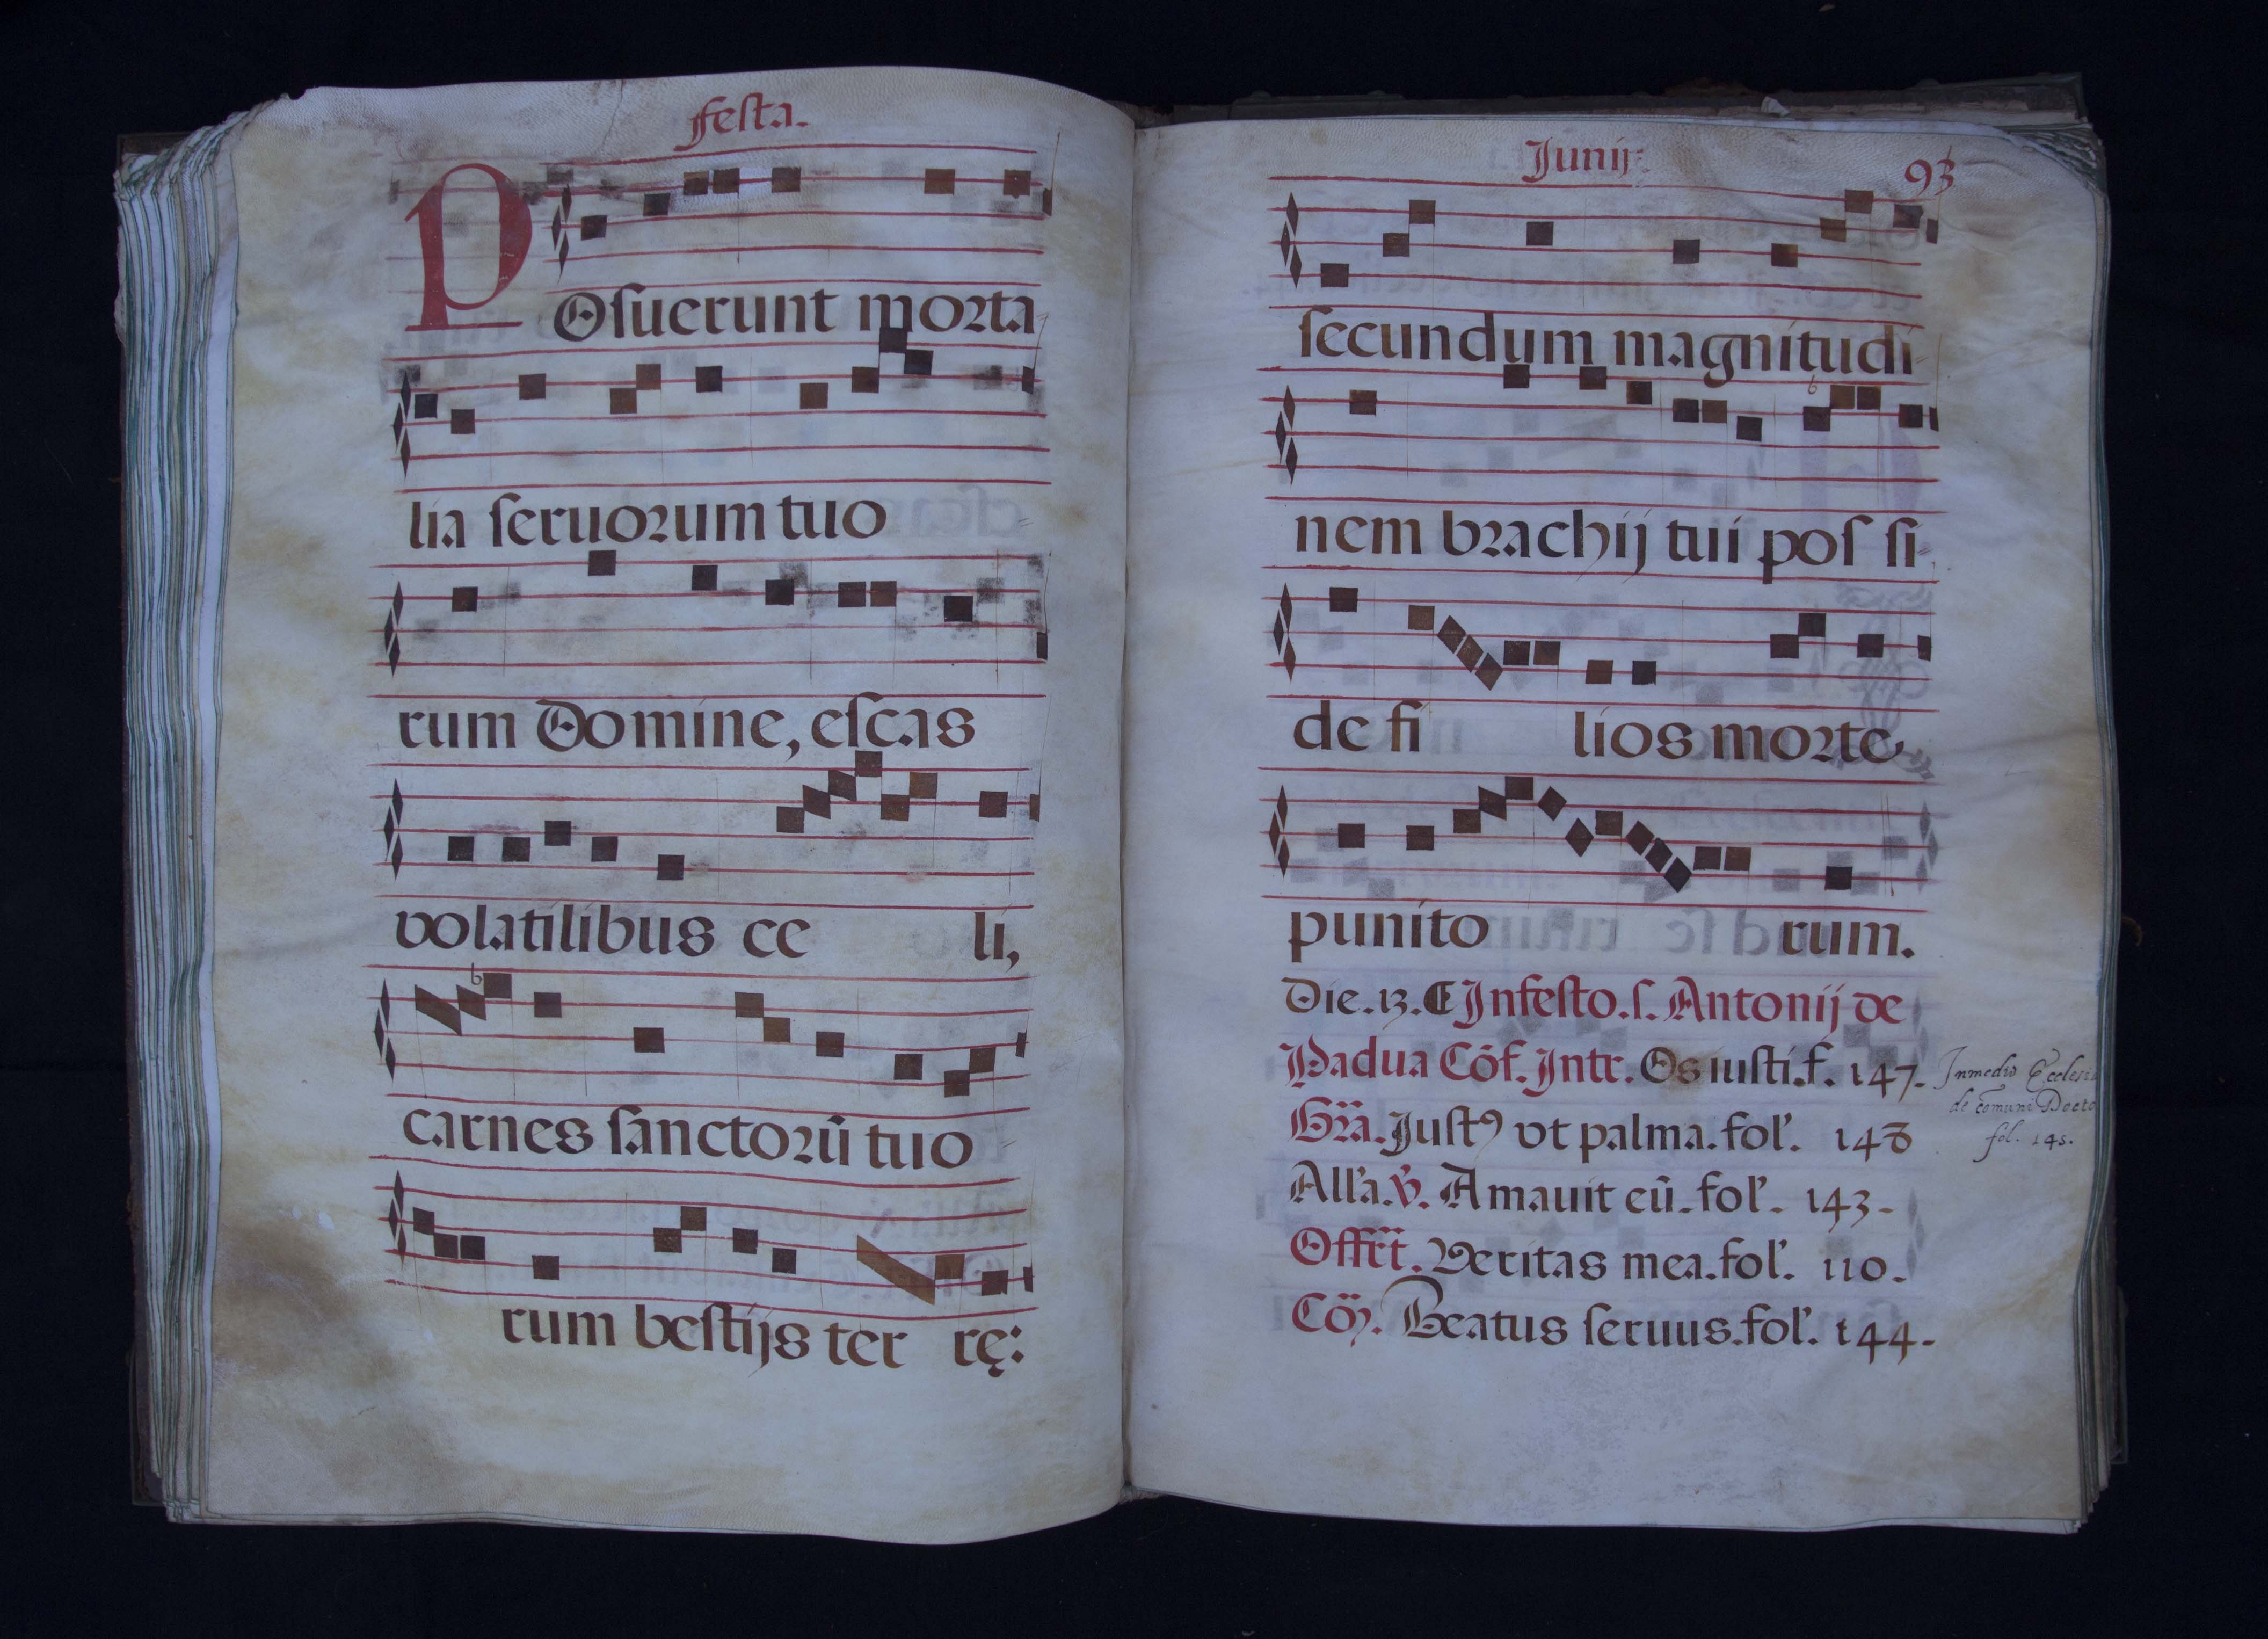 festa.
POsuerunt morta
lia seruorum tuo
rum Domine, escas
volatilibus ce li,
carnes sanctorū tuo
rum bestijs ter rę:
Junij 93
secundum magnitudi
nem brachij tui pos si
de fi lios morte
punito rum.
Die. 13. In festo. s. Antonij de
Padua Cōf. Intr. Os iusti. f. 147.
Gr̄a. Justꝰ vt palma. fol'. 148
All'a. ℣. Amauit eū. fol'. 143.
Offr̄t. Veritas mea. fol'. 110.
Cō. Beatus seruus. fol'. 144.
Inmedio Ecclesi
de comuni Docto
fol. 145.